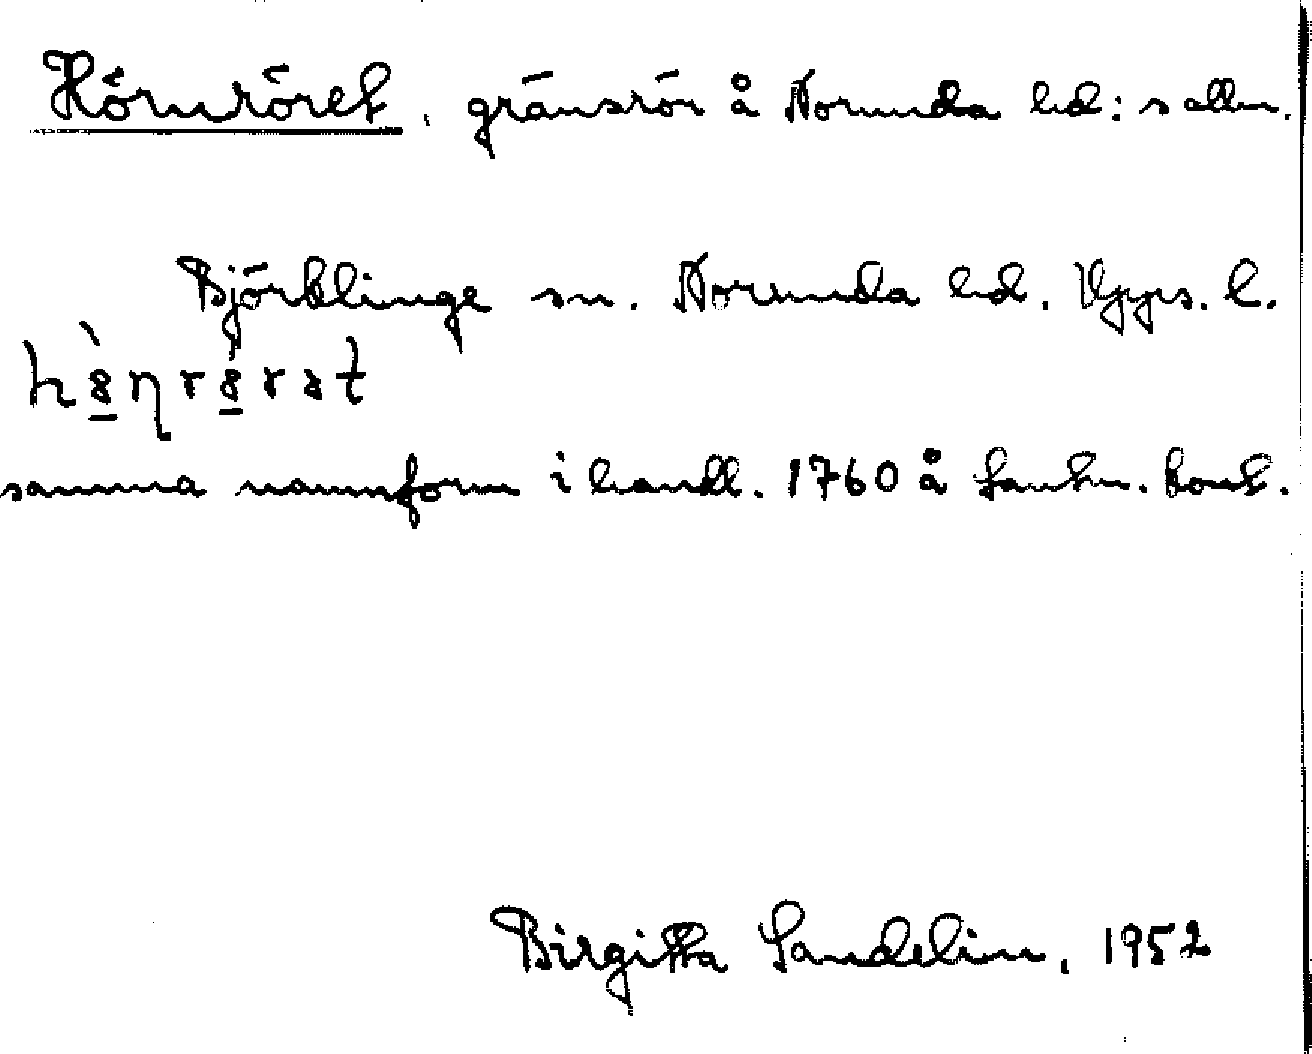 Hörnröret, gränsrör å Norunda hd:s allm.
Björklinge sn. Norunda hd. Upps. l.
samma namnform i handl. 1760 å Lantm. kont.
Birgitta Sandelin, 1952